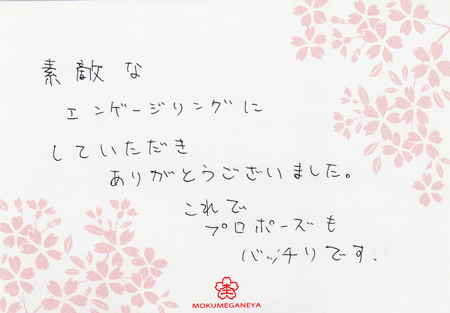 素敵な
エンゲージリングに
していただき
ありがとうございました。
これで
プロポーズも
バッチリです.
杢
MOKUMEGANEYA